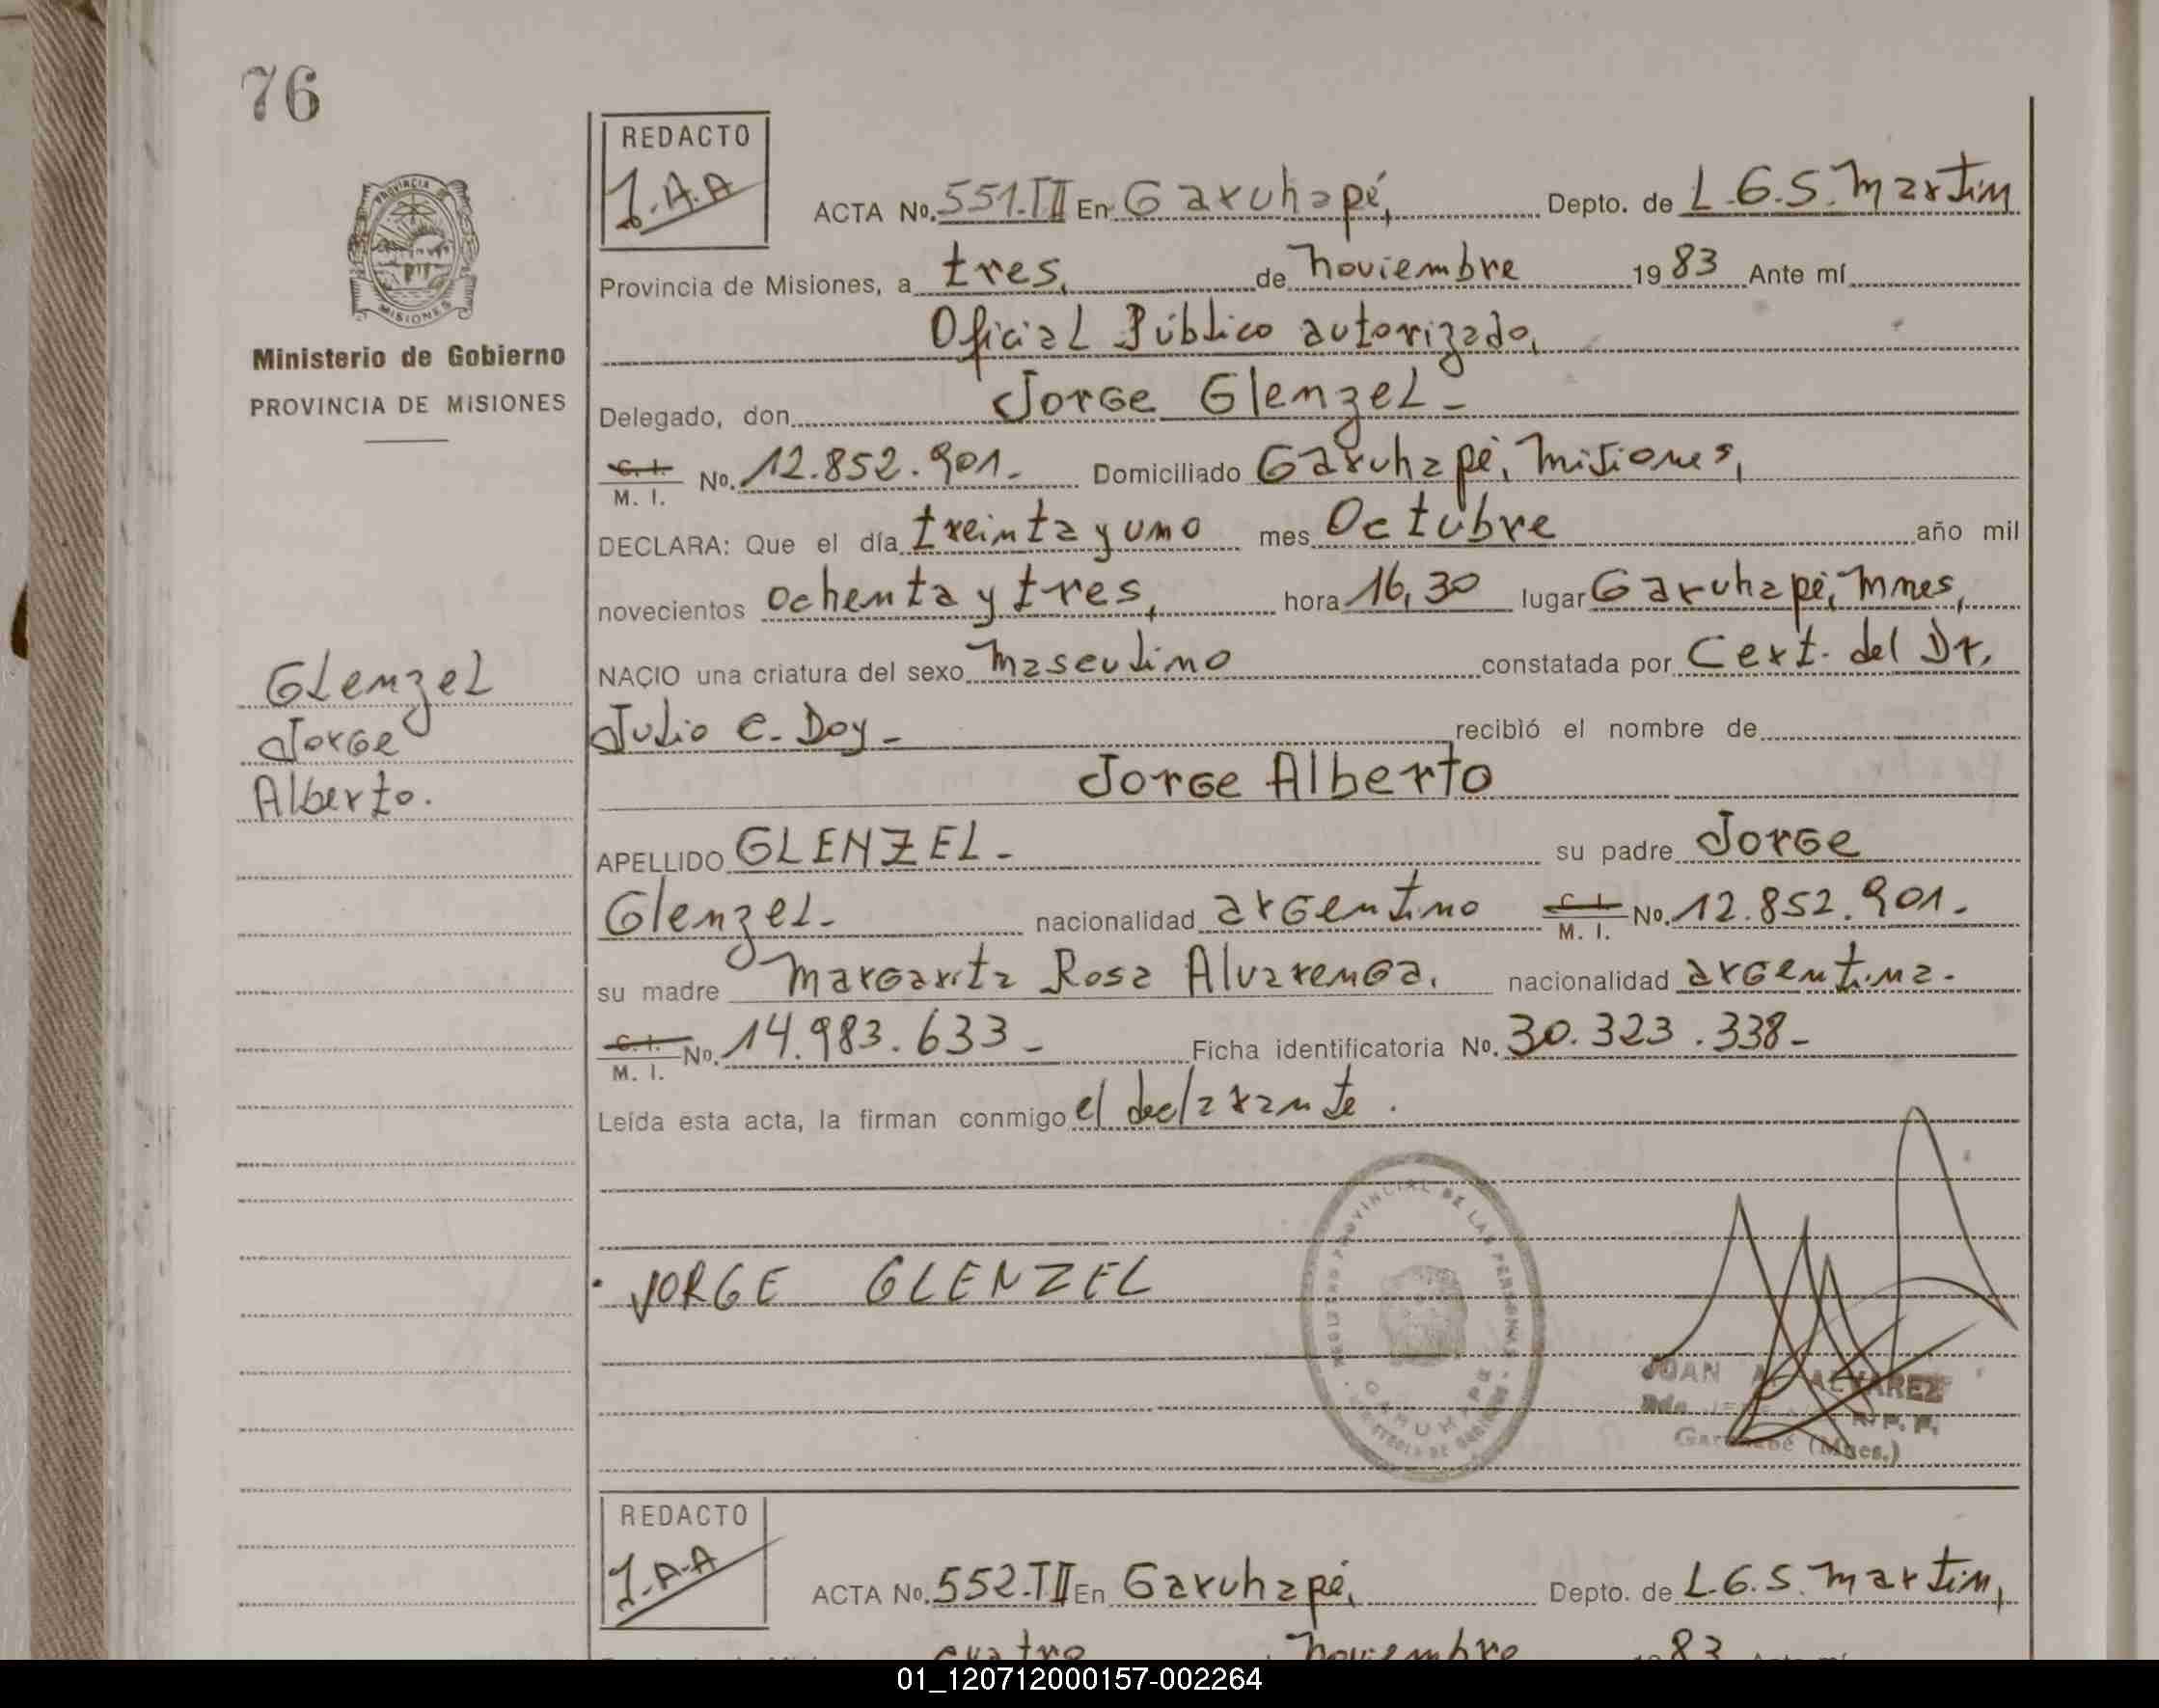 76
REDACTO
J.A.A
PROVINCIA DE
MISIONES
Ministerio de Gobierno
PROVINCIA DE MISIONES
ACTA No. 551.TII En Garuhapé, Depto. de L.G.S. Martin
Provincia de Misiones, a tres, de Noviembre 1983 Ante mí
Oficial Público autorizado,
Delegado, don Jorge Glenzel-
C. I. M. I. No. 12.852.901- Domiciliado Garuhapé, Misiones,
DECLARA: Que el día treinta y uno mes Octubre año mil
novecientos ochenta y tres, hora 16,30 lugar Garuhapé, Mnes,
NACIO una criatura del sexo masculino constatada por Cert. del Dr.
Julio C. Doy- recibió el nombre de
Jorge Alberto
Glenzel
Jorge
Alberto.
APELLIDO GLENZEL- su padre Jorge
Glenzel- nacionalidad argentino C. I. M. I. No. 12.852.901-
su madre Margarita Rosa Alvarenga. nacionalidad argentina-
C. I. M. I. No. 14.983.633- Ficha identificatoria No. 30.323.338-
Leída esta acta, la firman conmigo el declarante.
JORGE GLENZEL
REGISTRO PROVINCIAL DE LAS PERSONAS
GARUHAPE
JUAN A. ALVAREZ
R. P. P.
Garuhapé (Mnes.)
REDACTO
J.A-A
ACTA No. 552-TII En Garuhapé, Depto. de L.G.S. Martin,
cuatro Noviembre 83
01_120712000157-002264